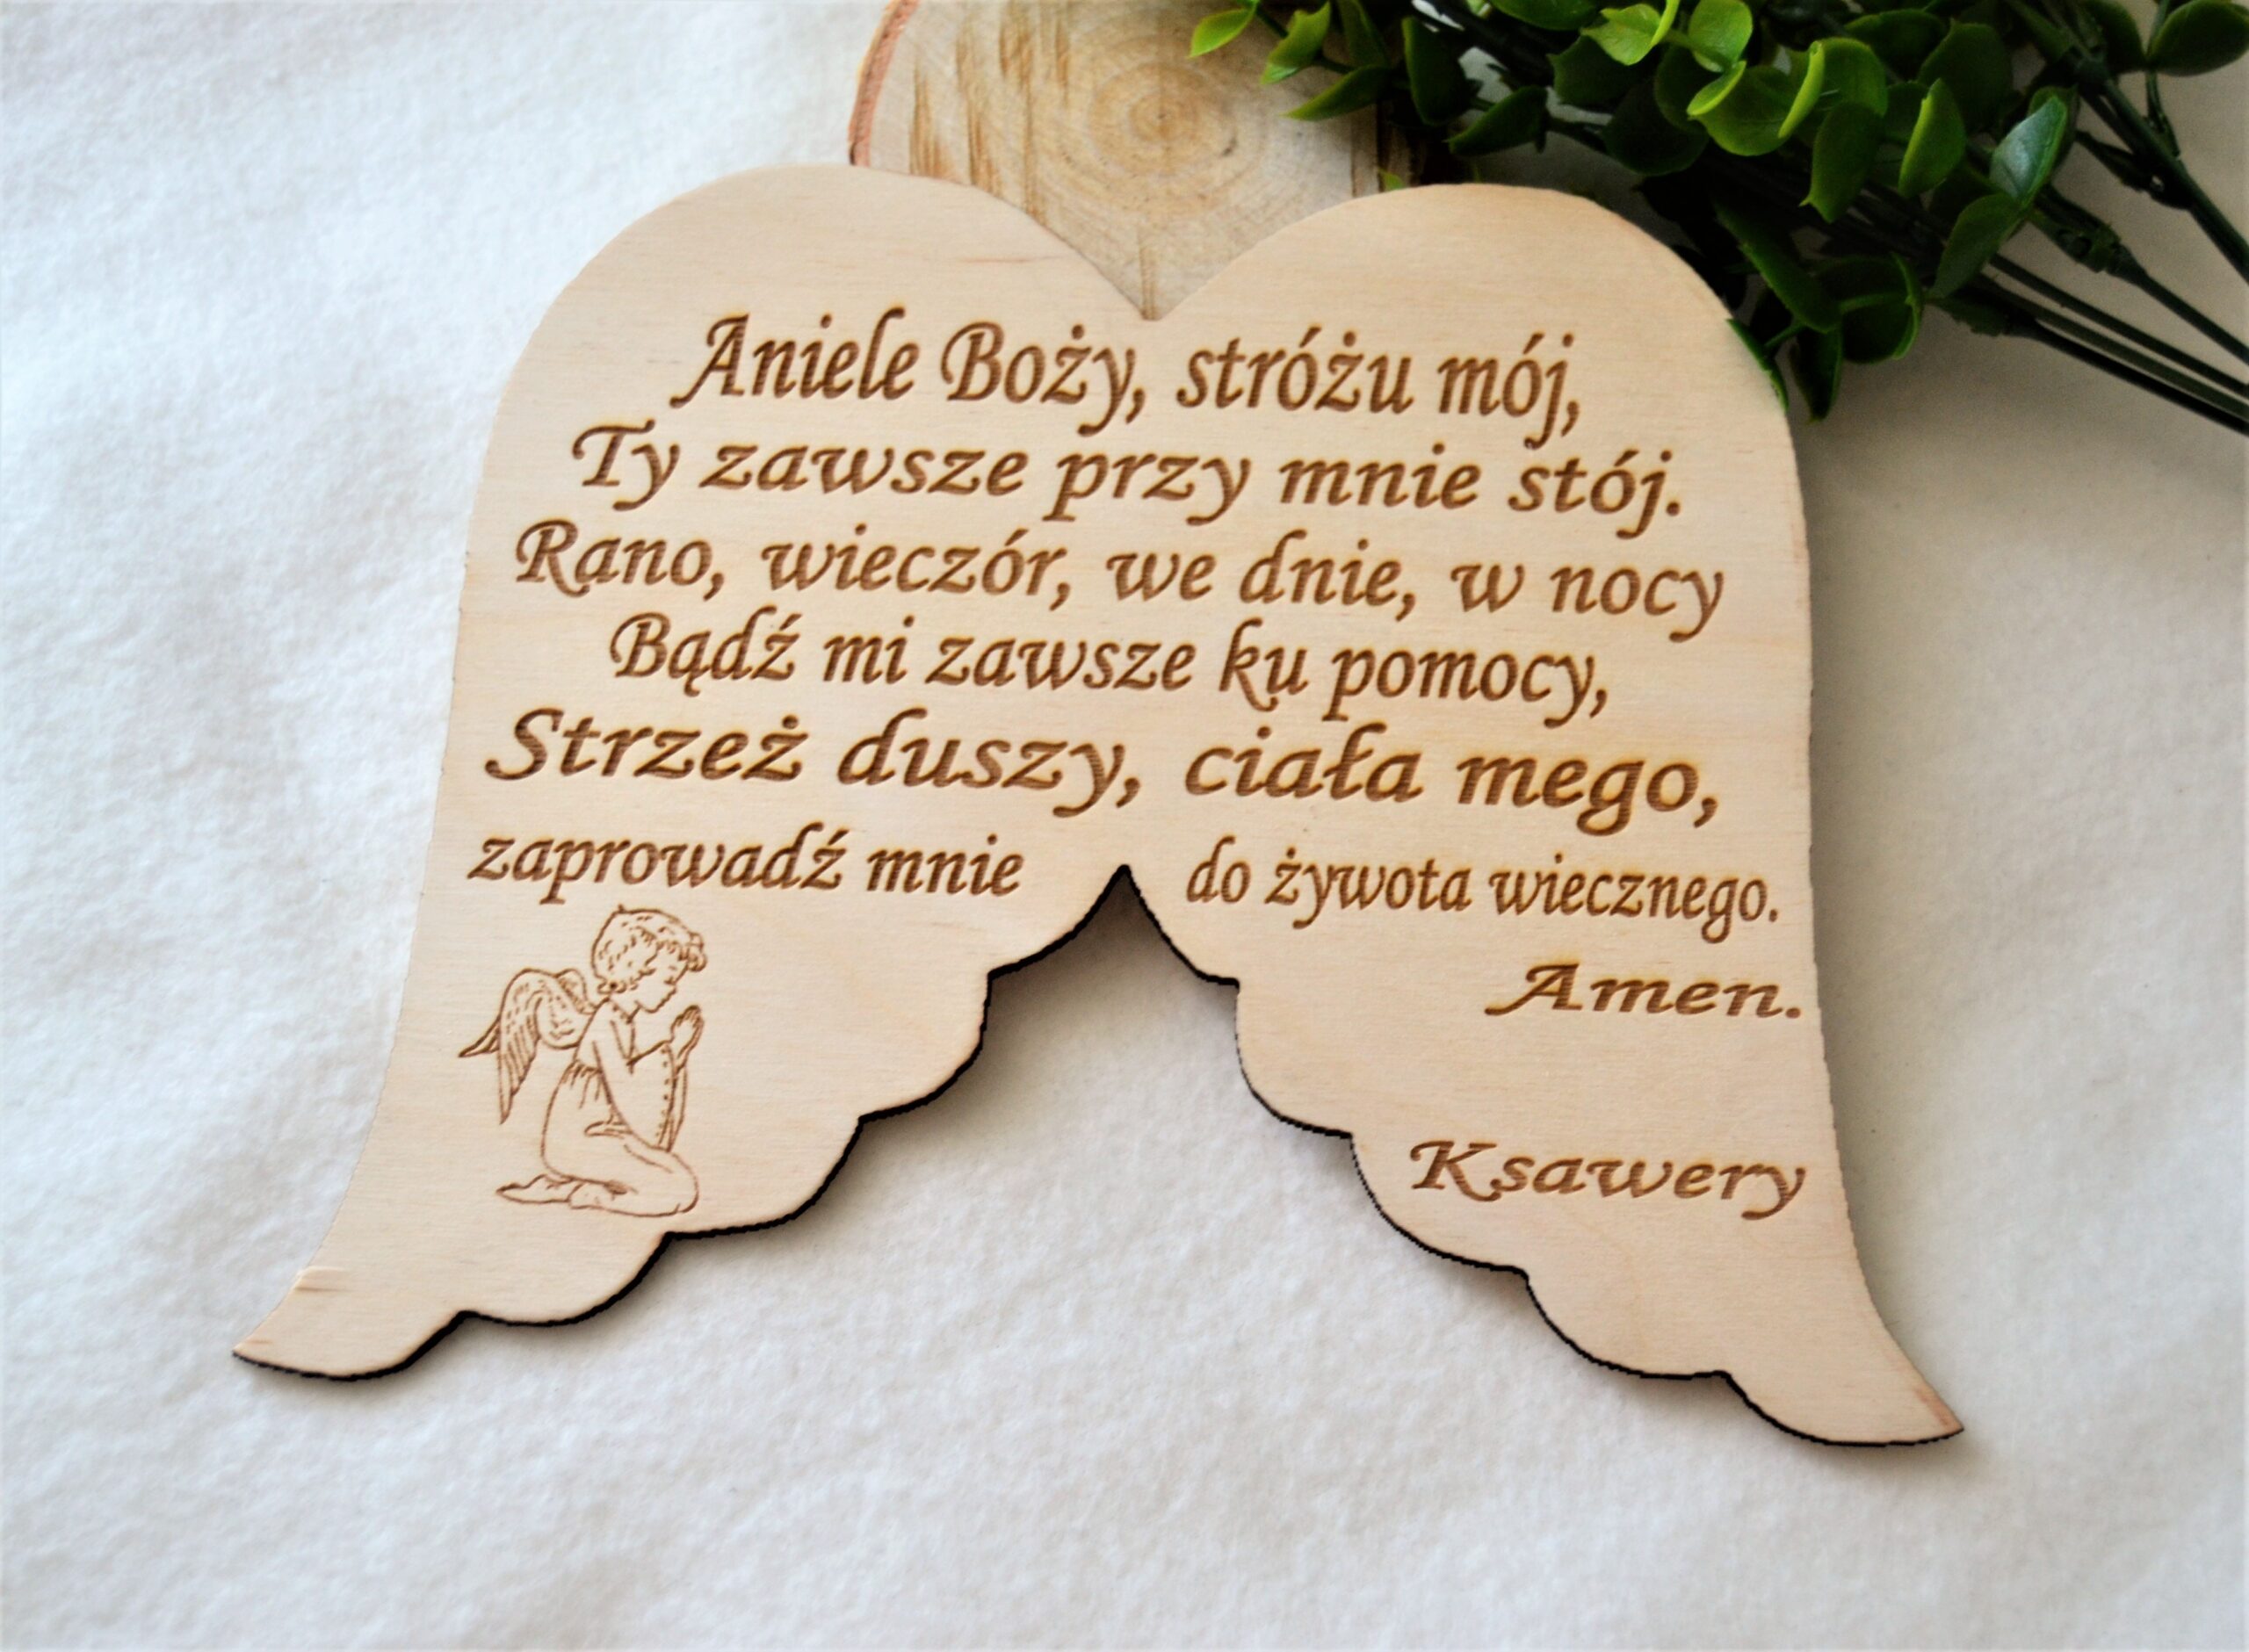 Aniele Boży, stróżu mój,
Ty zawsze przy mnie stój.
Rano, wieczór, we dnie, w nocy
Bądź mi zawsze ku pomocy,
Strzeż duszy, ciała mego,
zaprowadź mnie do żywota wiecznego.
Amen.
Ksawery